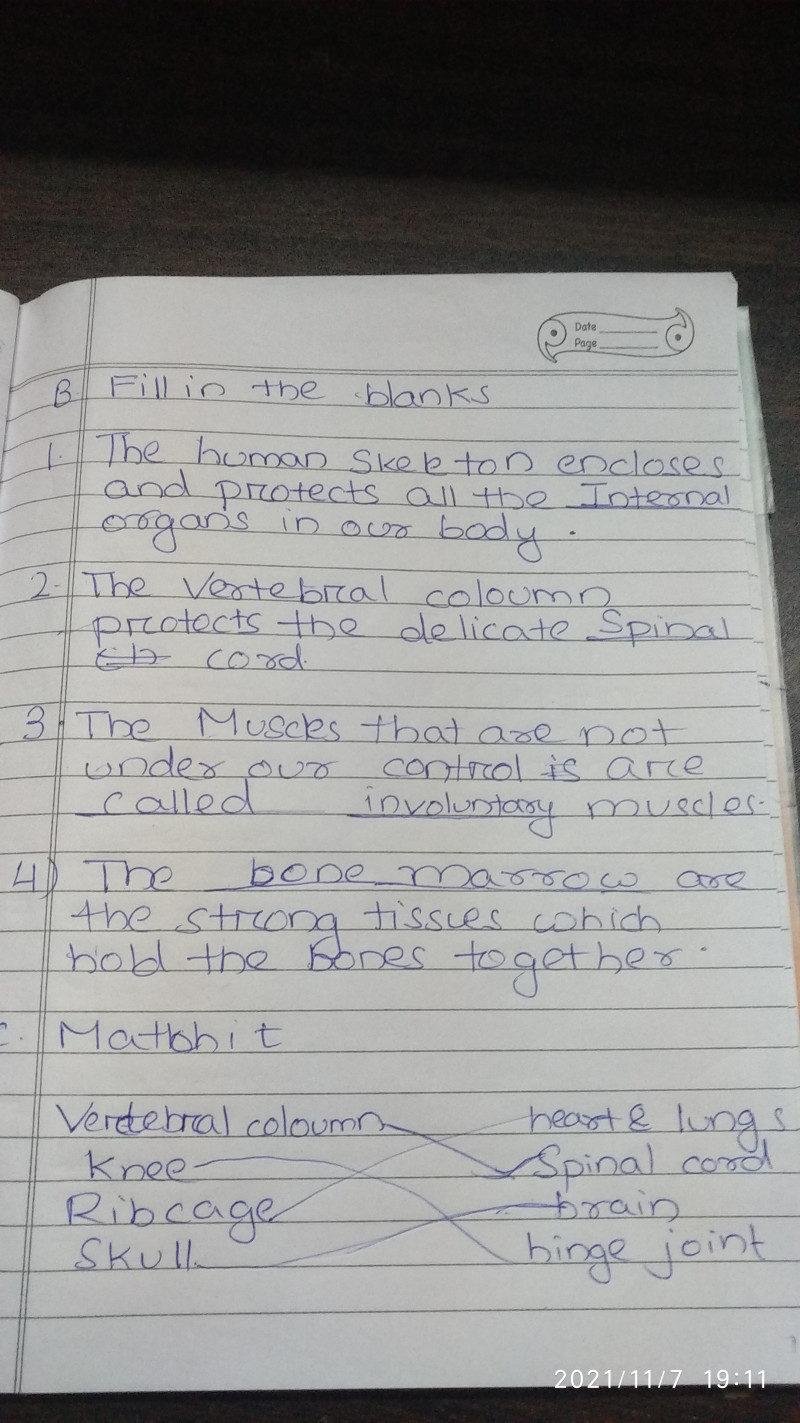 Date
Page
B. Fill in the blanks
1. The human Skeleton encloses
and protects all the Internal
organs in our body.
2. The Vertebral coloumn
protects the delicate Spinal
cord.
3 The Muscles that are not
under our control is are
called involuntary muscles.
4) The bone marrow are
the strong tissues which
hold the bones together.
C. Match it
Vertebral coloumn heart & lungs
Knee Spinal cord
Ribcage brain
Skull hinge joint
2021/11/7 19:11